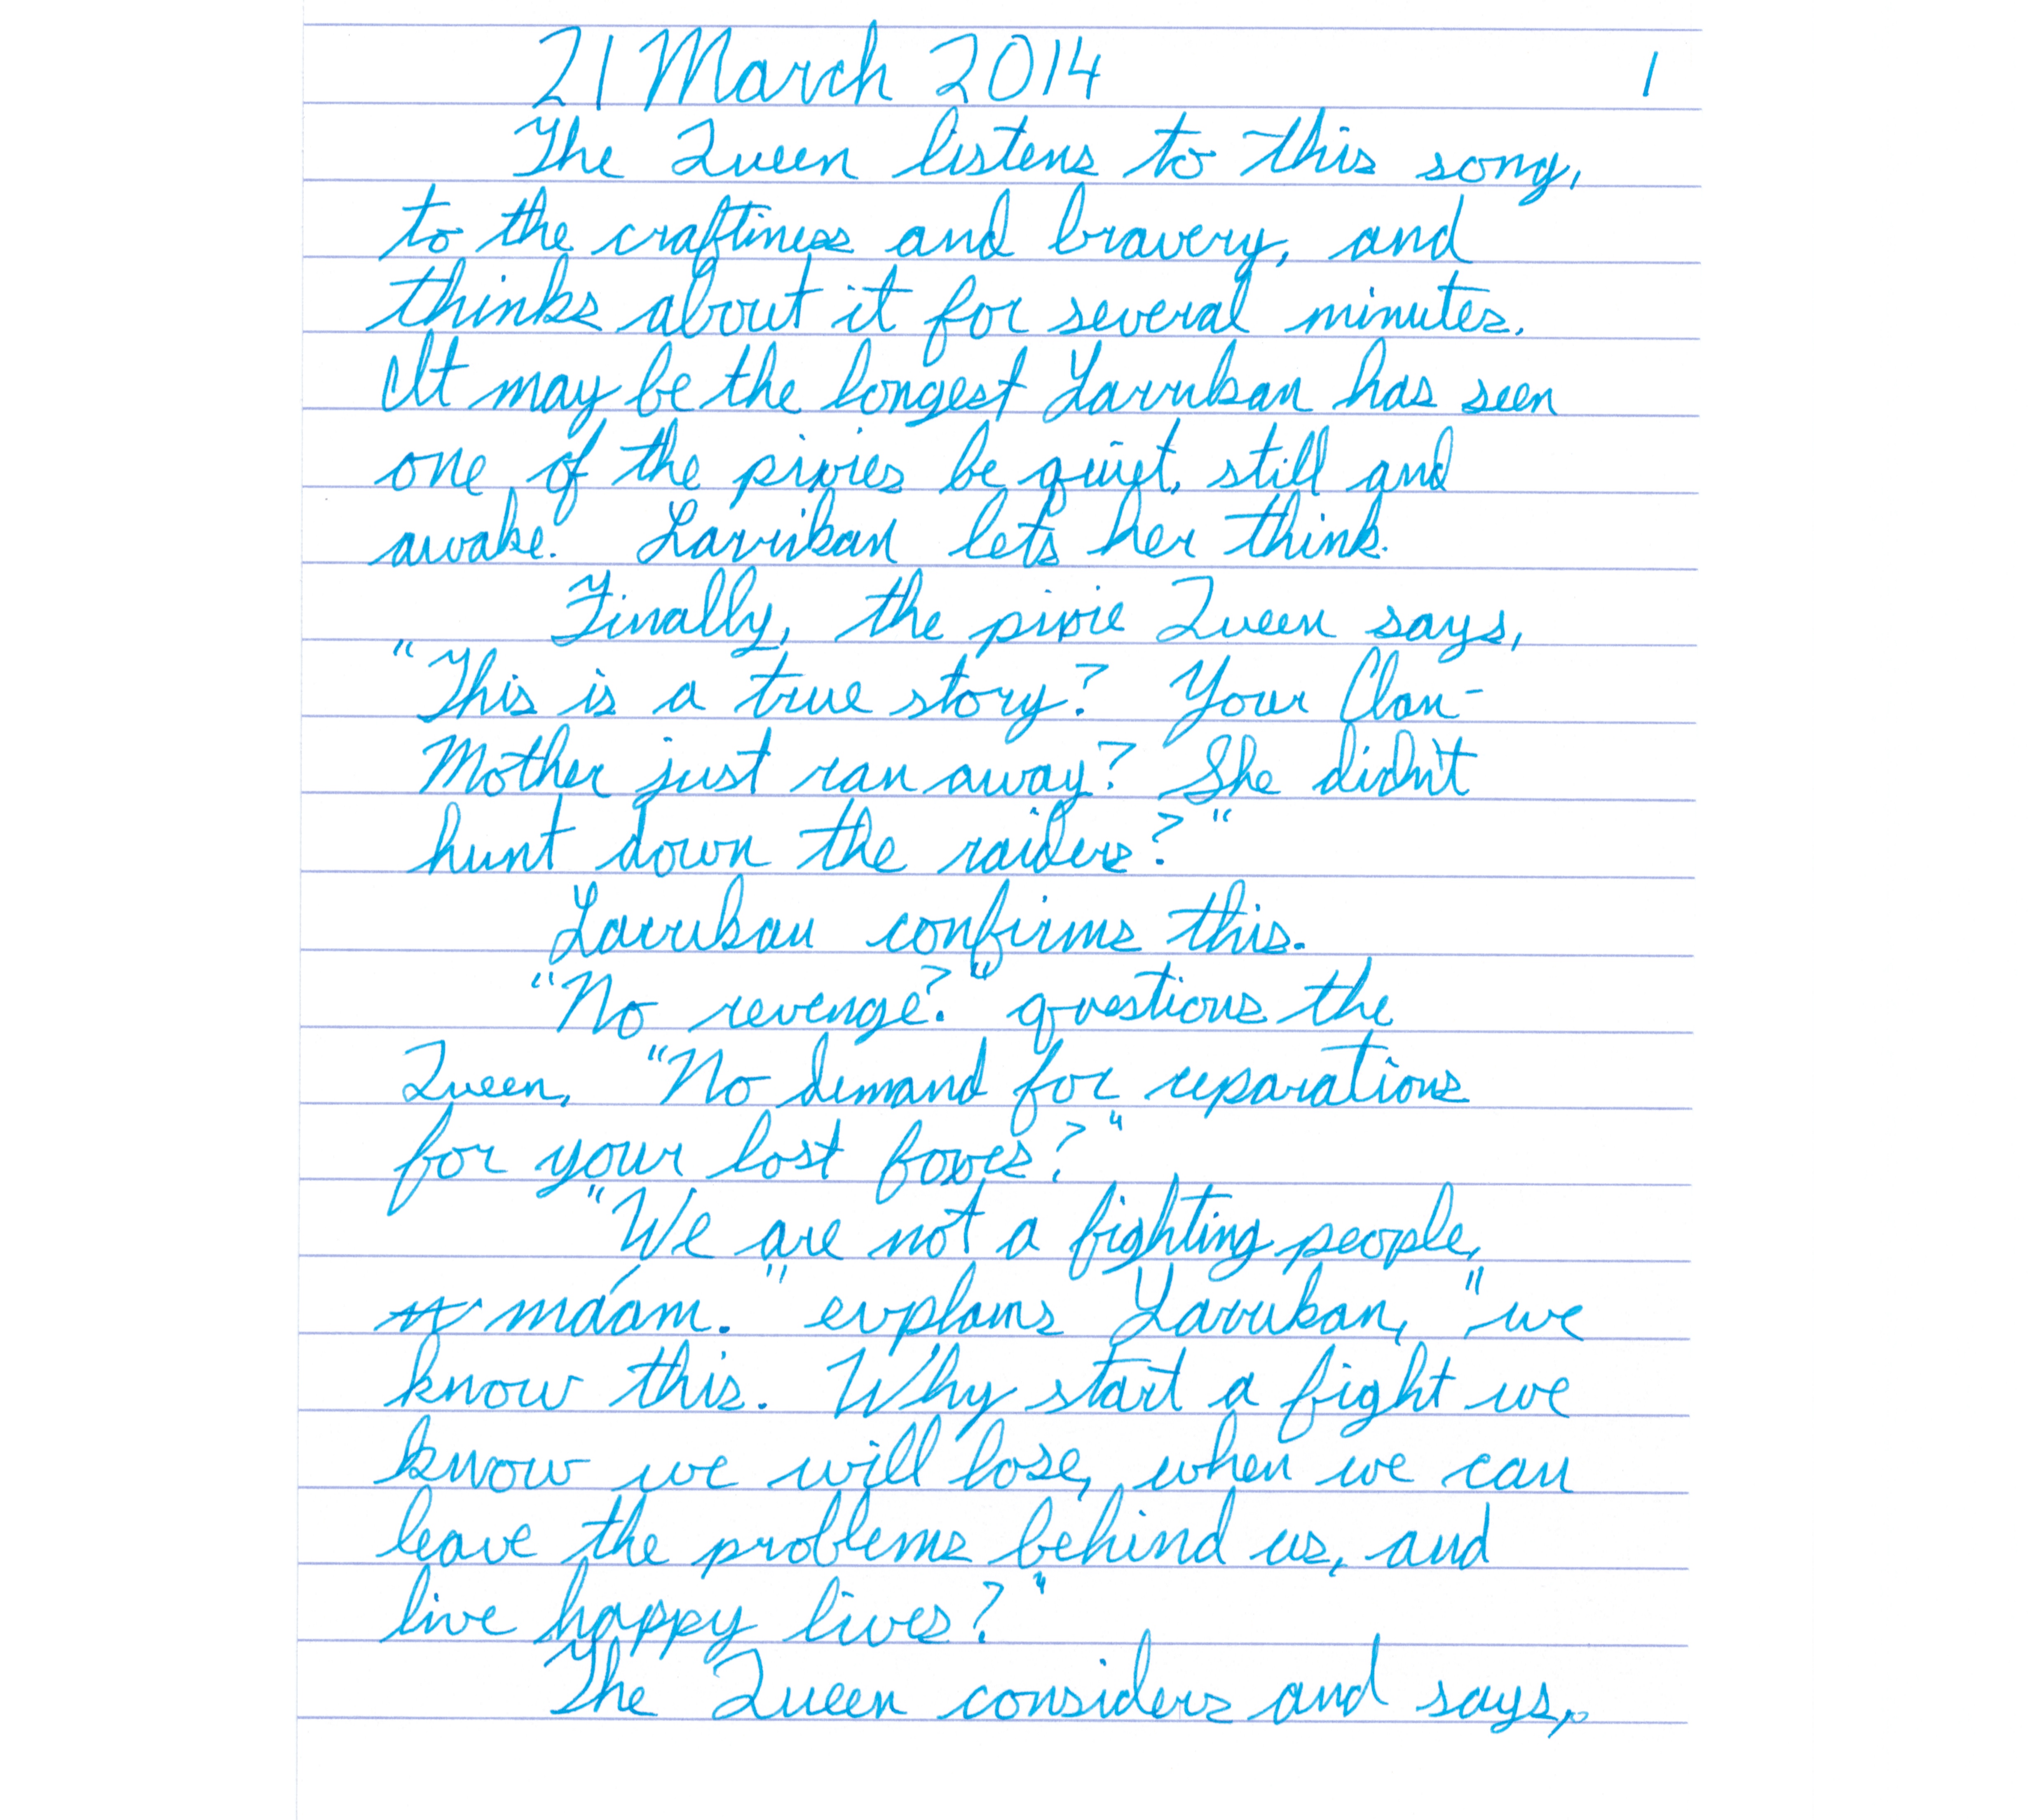 21 March 2014 1
The Queen listens to this song,
to the craftiness and bravery, and
thinks about it for several minutes.
It may be the longest Larrikan has seen
one of the pixies be quiet, still and
awake. Larrikan lets her think.
Finally, the pixie Queen says,
"This is a true story? Your Clan-
Mother just ran away? She didn't
hunt down the raiders?"
Larrikan confirms this.
"No revenge?" questions the
Queen, "No demand for reparations
for your lost foxes?"
"We are not a fighting people,
ma'am." explains Larrikan, "we
know this. Why start a fight we
know we will lose, when we can
leave the problems behind us, and
live happy lives?"
The Queen considers and says,